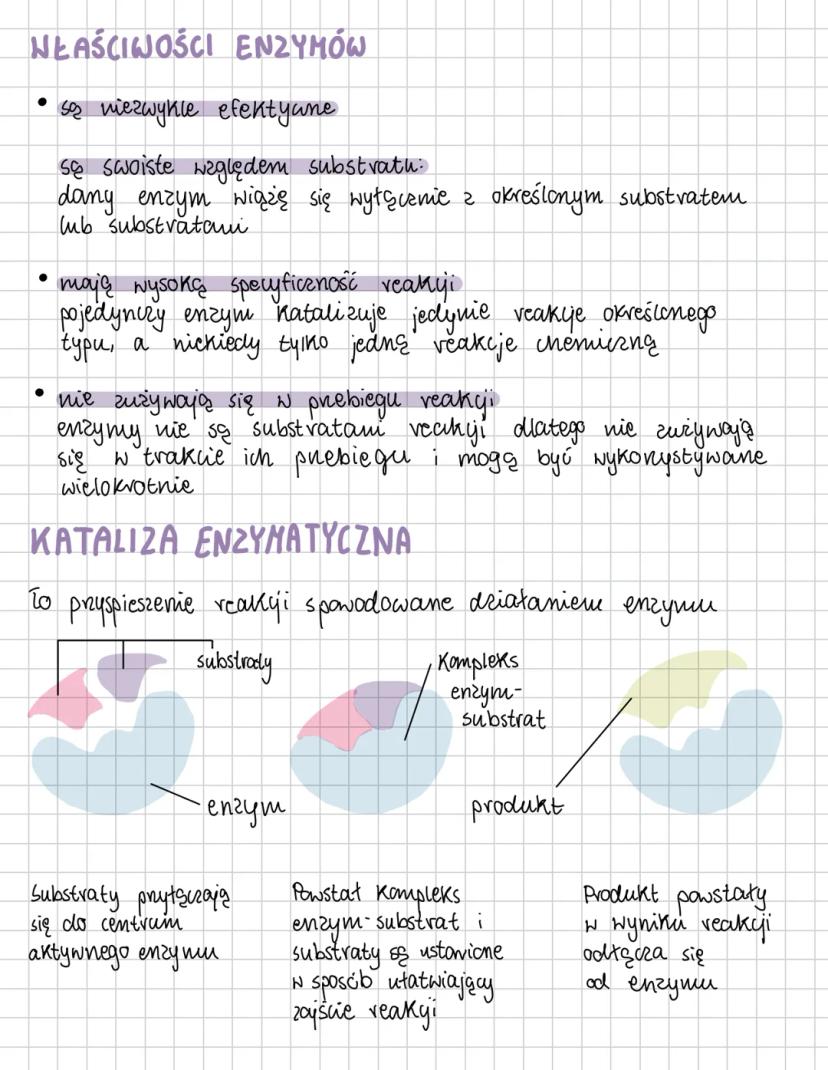 WŁAŚCIWOŚCI ENZYMÓW
• są niezwykle efektywne
są swoiste względem substratu:
dany enzym wiążę się wyłącznie z określonym substratem
lub substratami
• mają wysoką specyficzność reakcji
pojedynczy enzym katalizuje jedynie reakcje określonego
typu, a niekiedy tylko jedną reakcje chemiczną
• nie zużywają się w przebiegu reakcji
enzymy nie są substratami reakcji dlatego nie zużywają
się w trakcie ich przebiegu i mogą być wykorzystywane
wielokrotnie
KATALIZA ENZYMATYCZNA
To przyspieszenie reakcji spowodowane działaniem enzymu
substraty
enzym
Kompleks
enzym-
substrat
produkt
Substraty przyłączają
się do centrum
aktywnego enzymu
Powstał kompleks
enzym-substrat i
substraty są ustawione
w sposób ułatwiający
zajście reakcji
Produkt powstały
w wyniku reakcji
odłącza się
od enzymu